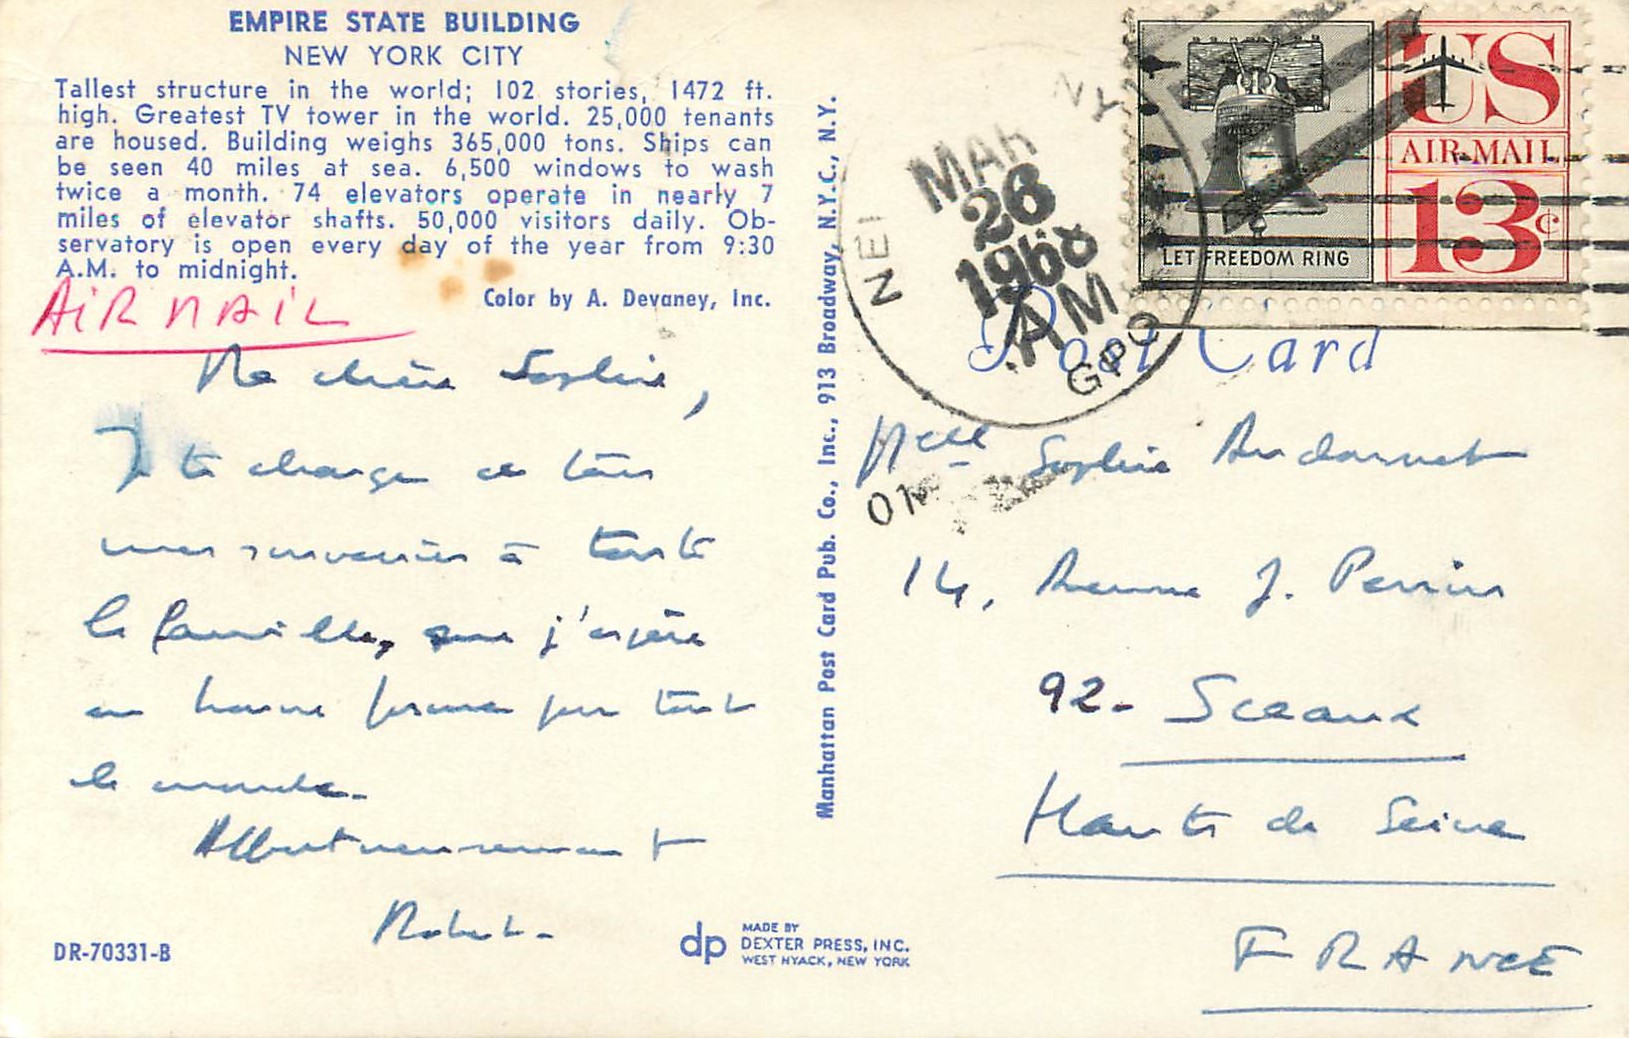 EMPIRE STATE BUILDING
NEW YORK CITY
Tallest structure in the world; 102 stories, 1472 ft.
high. Greatest TV tower in the world. 25,000 tenants
are housed. Building weighs 365,000 tons. Ships can
be seen 40 miles at sea. 6,500 windows to wash
twice a month. 74 elevators operate in nearly 7
miles of elevator shafts. 50,000 visitors daily. Ob-
servatory is open every day of the year from 9:30
A.M. to midnight.
Color by A. Devaney, Inc.
AIR MAIL
Ma chère Sophie,
Je te charge de tous
mes souvenirs à toute
la famille, que j'espère
en bonne forme pour tout
le monde.
Affectueusement
Robert.
DR-70331-B
dp
MADE BY
DEXTER PRESS, INC.
WEST NYACK, NEW YORK
Manhattan Post Card Pub. Co., Inc., 913 Broadway, N.Y.C., N.Y.
NY
MAR
26
1968
AM
GPO
US
AIR MAIL
13¢
LET FREEDOM RING
Post Card
Melle Sophie
14, Avenue J. Perrin
92- Sceaux
Hauts de Seine
FRANCE